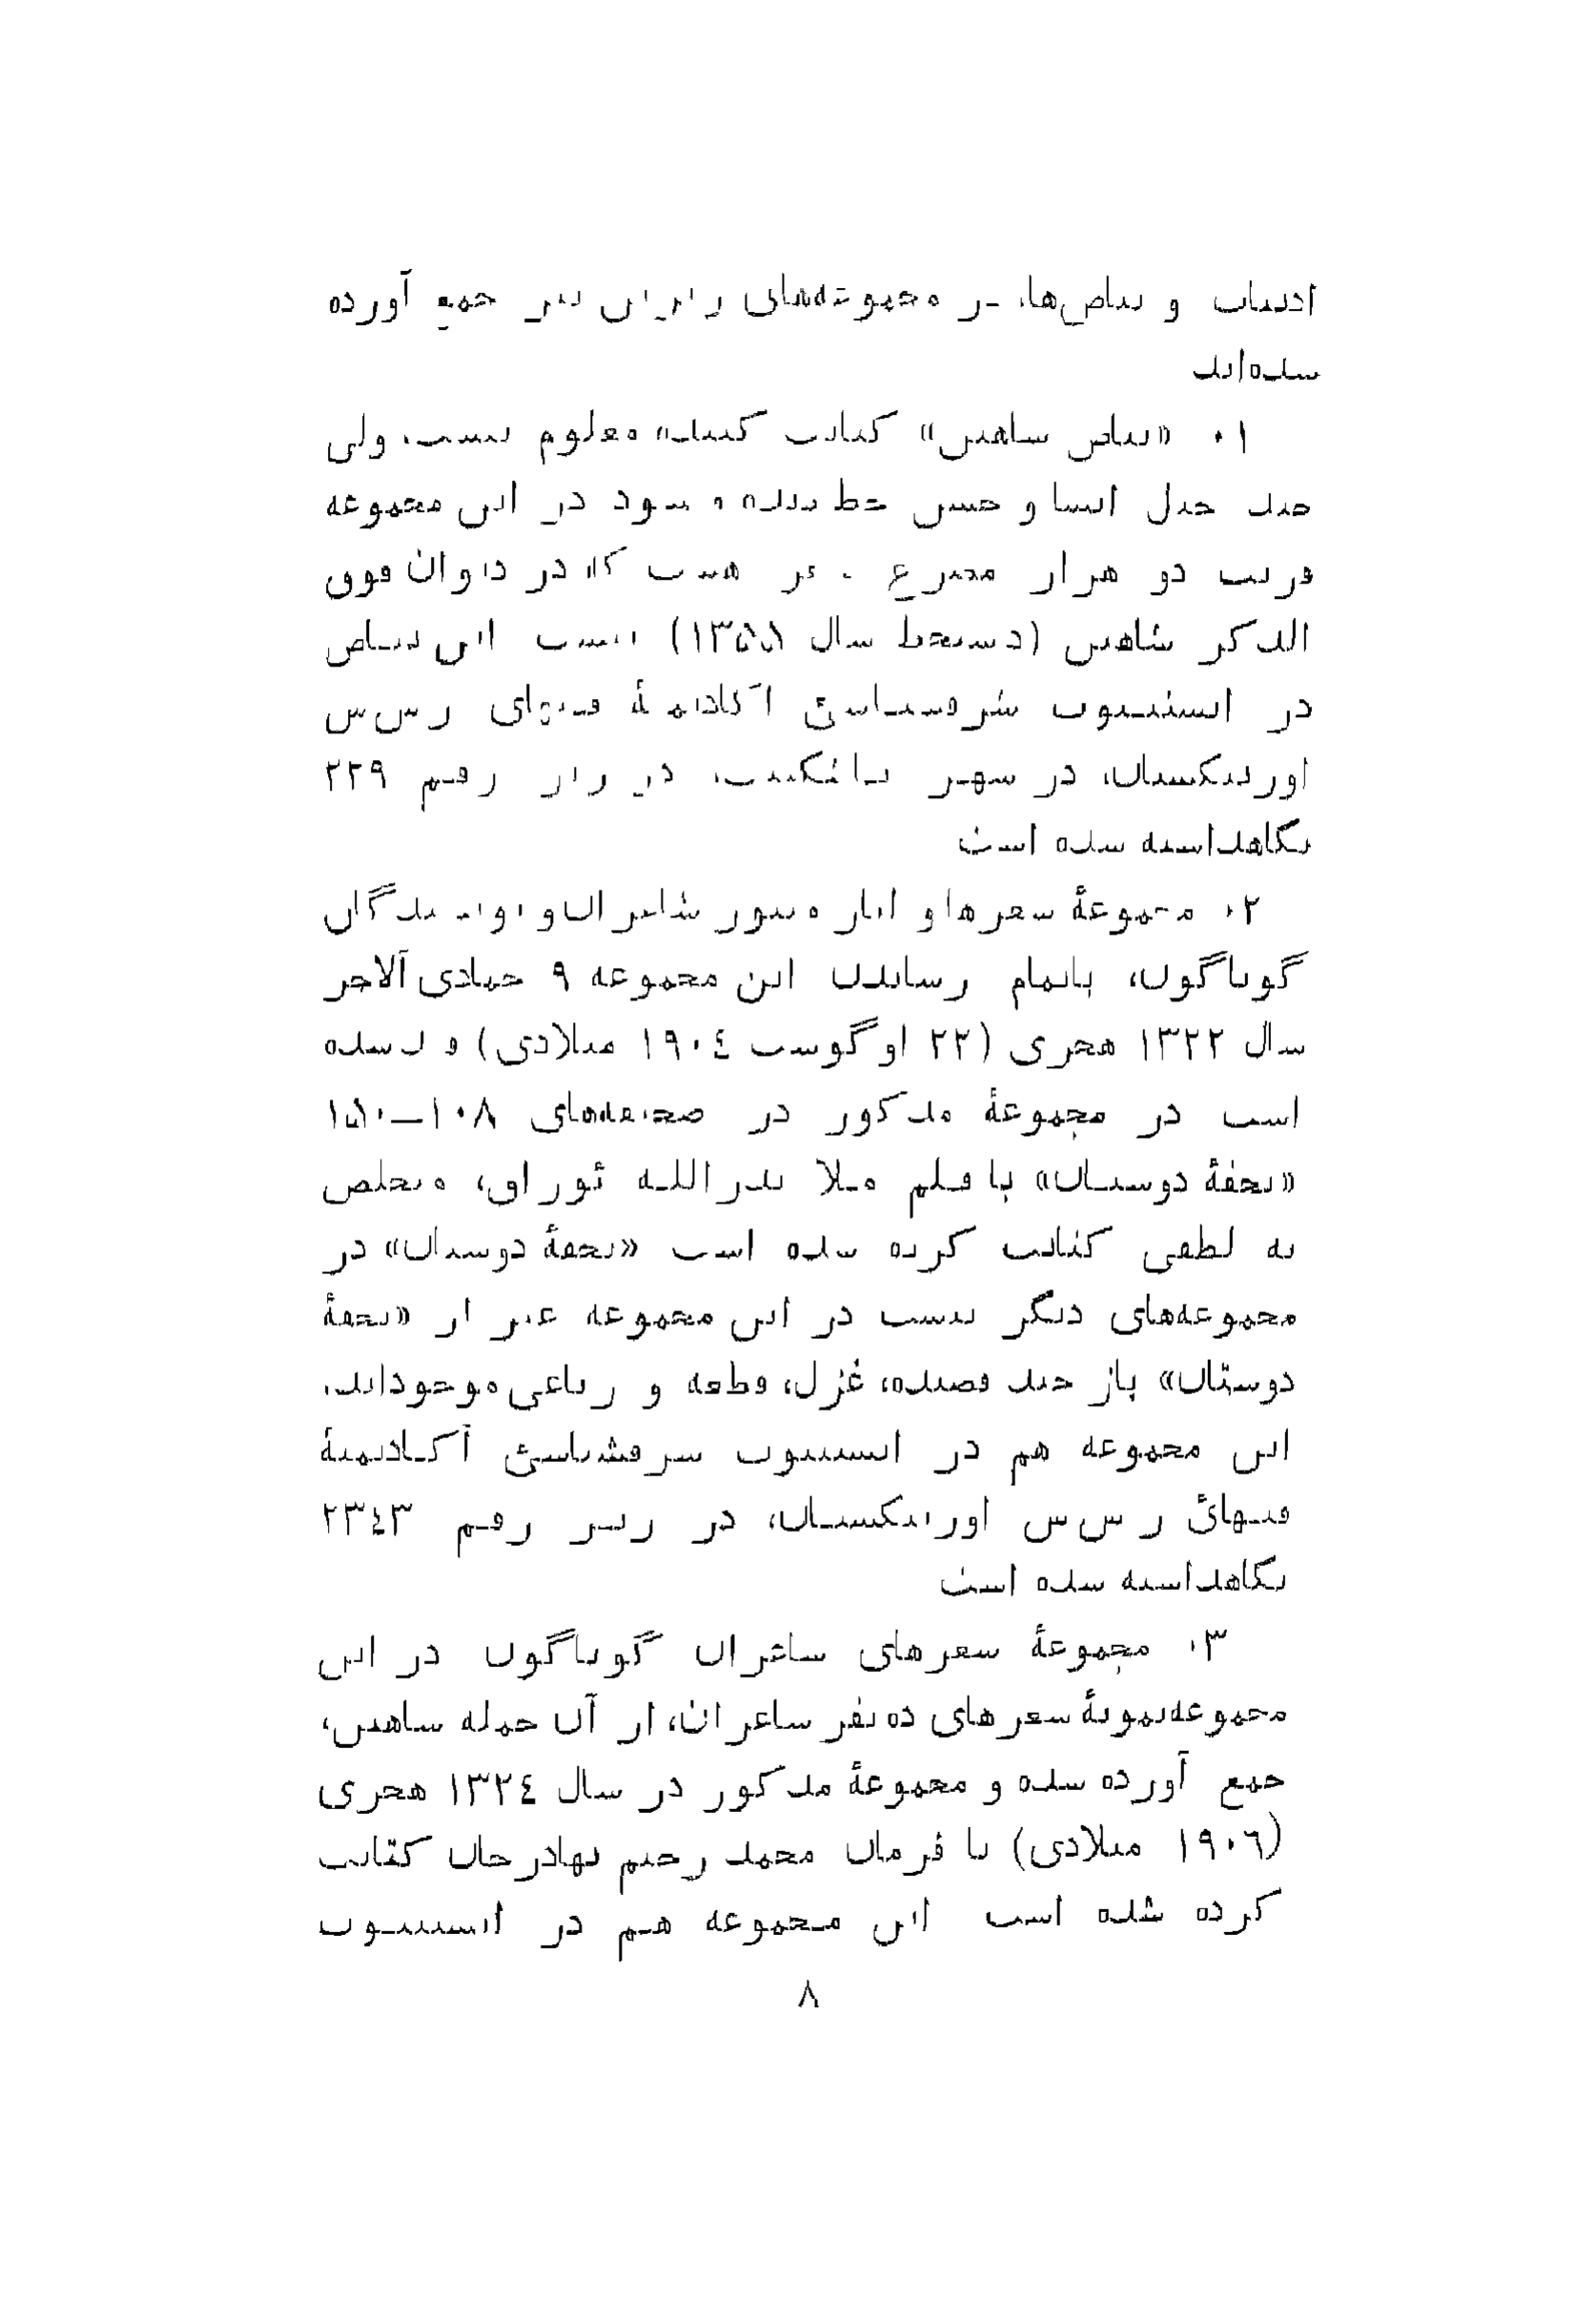 ادبیات و بیاض‌ها، در مجموعه‌های زیرین نیز جمع آورده
شده‌اند
۱. «بیاض شاهین» کتابت کننده معلوم نیست، ولی
چند جدل انشا و حسن خط دیده میشود در این مجموعه
قریب دو هزار مصرع هست که در دیوان فوق
الذکر شاهین (دستخط سال ۱۳۵۵) نیست این بیاض
در انستیتوت شرقشناسئ آکادیمیهٔ فنهای ر س س
اوزبیکستان، در شهر تاشکینت، در زیر رقم ۲۲۹
نگاهداشته شده است
۲. مجموعهٔ شعرها و آثار منثور شاعران و نویسندگان
گوناگون، باتمام رساندن این مجموعه ۹ جمادی آلاخر
سال ۱۳۲۲ هجری (۲۲ اوگوست ۱۹۰٤ میلادی) قید شده
است در مجموعهٔ مذکور در صحیفه‌های ۱۰۸—۱۵۰
«تحفهٔ دوستان» با قلم ملا بدرالله ئوراق، متخلص
به لطفی کتابت کرده شده است «تحفهٔ دوستان» در
مجموعه‌های دیگر نیست در این مجموعه غیر از «تحفهٔ
دوستان» باز چند قصیده، غزل، قطعه و رباعی موجوداند.
این مجموعه هم در انستیتوت شرقشناسئ آکادیمیهٔ
فنهائ ر س س اوزبیکستان، در زیر رقم ۲۳٤۳
نگاهداشته شده است
۳. مجموعهٔ شعرهای شاعران گوناگون در این
مجموعه نمونهٔ شعرهای ده نفر شاعران، از آن جمله شاهین،
جمع آورده شده و مجموعهٔ مذکور در سال ۱۳۲٤ هجری
(۱۹۰٦ میلادی) با فرمان محمد رحیم بهادرخان کتابت
کرده شده است این مجموعه هم در انستیتوت
۸